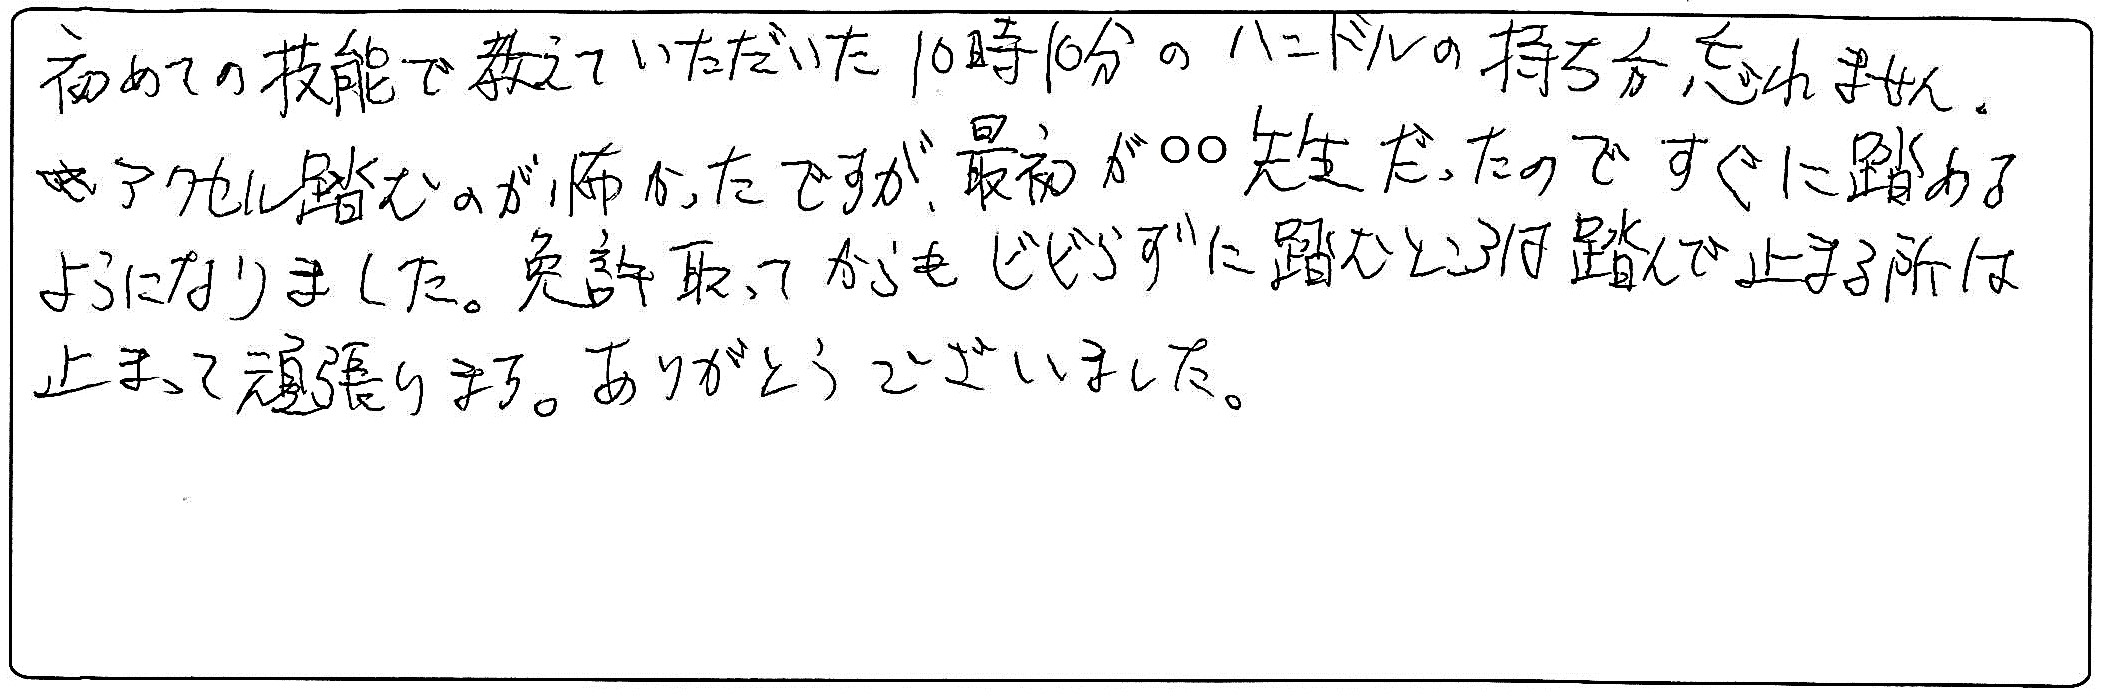 初めての技能で教えていただいた10時10分のハンドルの持ち方、忘れません。
アクセル踏むのが怖かったですが、最初が○○先生だったのですぐに踏める
ようになりました。免許取ってからもビビらずに踏むところは踏んで止まる所は
止まって頑張ります。ありがとうございました。